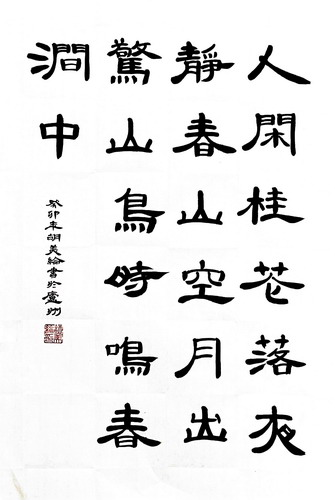 人閑桂花落夜
靜春山空月出
驚山鳥時鳴春
澗中
癸卯年胡美綸書於廬州